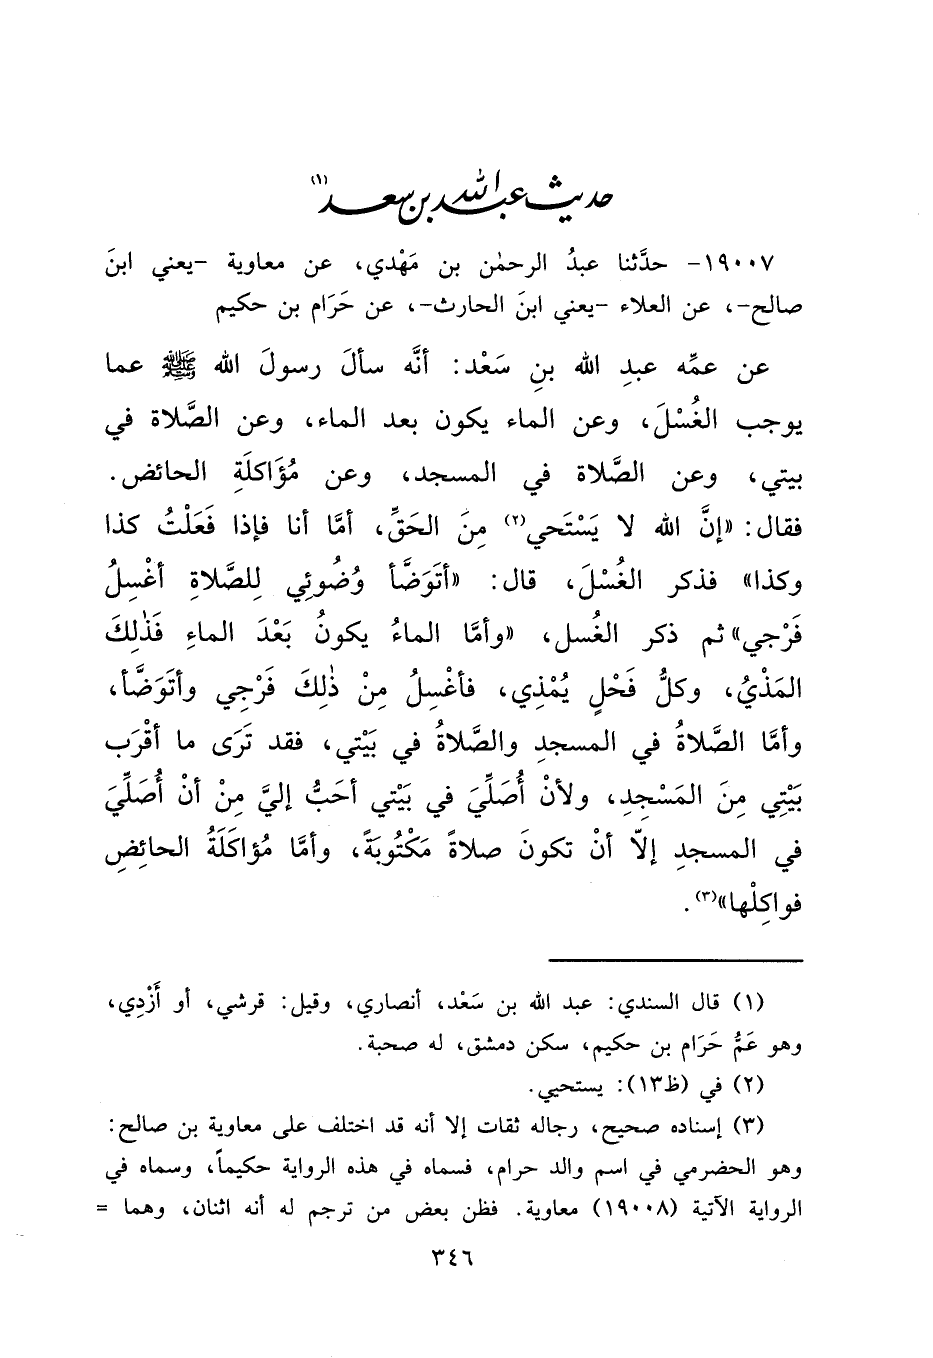 حديث عبد الله بن سعد(١)
١٩٠٠٧- حدَّثنا عبدُ الرحمٰن بن مَهْدي، عن معاوية -يعني ابنَ
صالح-، عن العلاء -يعني ابنَ الحارث-، عن حَرَام بن حكيم
عن عمِّه عبدِ الله بنِ سَعْد: أنَّه سألَ رسولَ الله ﷺ عما
يوجب الغُسْلَ، وعن الماء يكون بعد الماء، وعن الصَّلاة في
بيتي، وعن الصَّلاة في المسجد، وعن مُؤَاكلَةِ الحائض.
فقال: «إنَّ الله لا يَسْتَحي(٢) مِنَ الحَقِّ، أمَّا أنا فإذا فَعَلْتُ كذا
وكذا» فذكر الغُسْلَ، قال: «أتَوَضَّأ وُضُوئي لِلصَّلاةِ أغْسِلُ
فَرْجي» ثم ذكر الغُسل، «وأمَّا الماءُ يكونُ بَعْدَ الماءِ فَذٰلِكَ
المَذْيُ، وكلُّ فَحْلٍ يُمْذِي، فأغْسِلُ مِنْ ذٰلِكَ فَرْجِي وأتَوَضَّأ،
وأمَّا الصَّلاةُ في المسجدِ والصَّلاةُ في بَيْتي، فقد تَرَى ما أقْرَب
بَيْتِي مِنَ المَسْجِدِ، ولأنْ أُصَلِّيَ في بَيْتي أحَبُّ إليَّ مِنْ أنْ أُصَلِّيَ
في المسجدِ إلاّ أنْ تكونَ صلاةً مَكْتُوبَةً، وأمَّا مُؤاكَلَةُ الحائِضِ
فواكِلْها»(٣).
(١) قال السندي: عبد الله بن سَعْد، أنصاري، وقيل: قرشي، أو أَزْدِي،
وهو عَمُّ حَرَام بن حكيم، سكن دمشق، له صحبة.
(٢) في (ظ١٣): يستحيي.
(٣) إسناده صحيح، رجاله ثقات إلا أنه قد اختلف على معاوية بن صالح:
وهو الحضرمي في اسم والد حرام، فسماه في هذه الرواية حكيماً، وسماه في
الرواية الآتية (١٩٠٠٨) معاوية. فظن بعض من ترجم له أنه اثنان، وهما =
٣٤٦